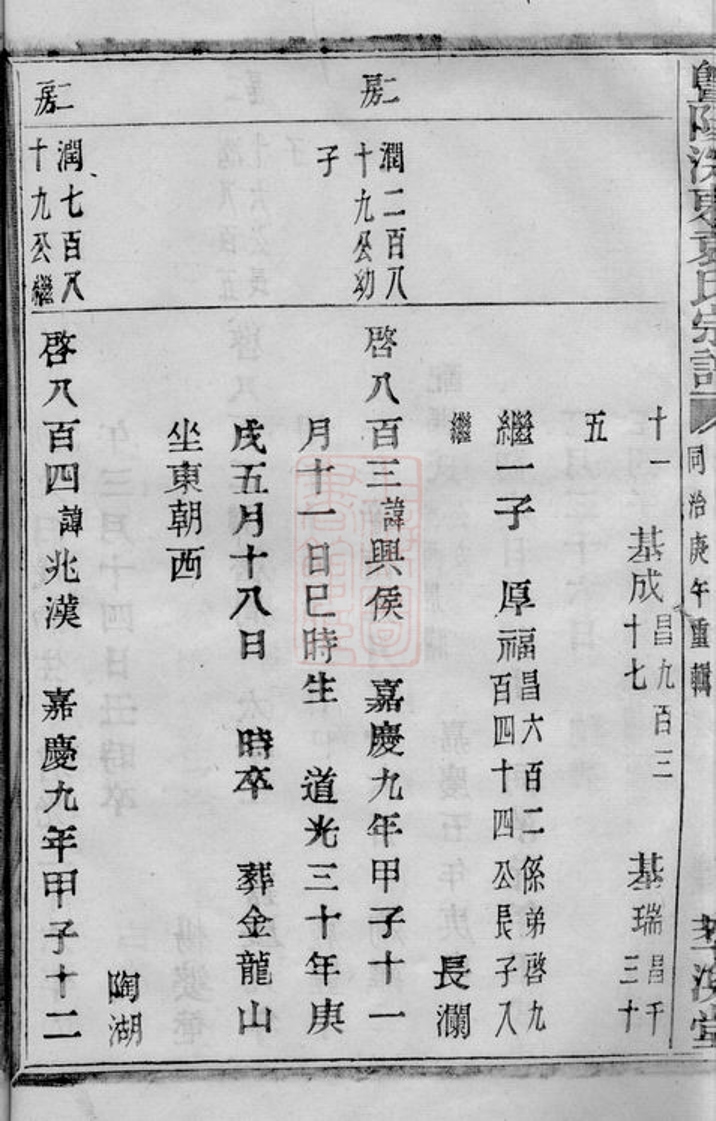 暨陽浣東袁氏宗譜 同治庚午重輯 堂
十一 基成 昌九百三十七 基瑞 昌千三十
五
繼一子 厚福 昌六百二係弟啓九百四十四公長子入
繼 長瀾
二房 潤二百八十九公幼 啓八百三諱興侯 嘉慶九年甲子十一
子 月十一日巳時生 道光三十年庚
戌五月十八日 時卒 葬金龍山
坐東朝西
陶湖
二房 潤七百八十九公繼 啓八百四諱兆漢 嘉慶九年甲子十二